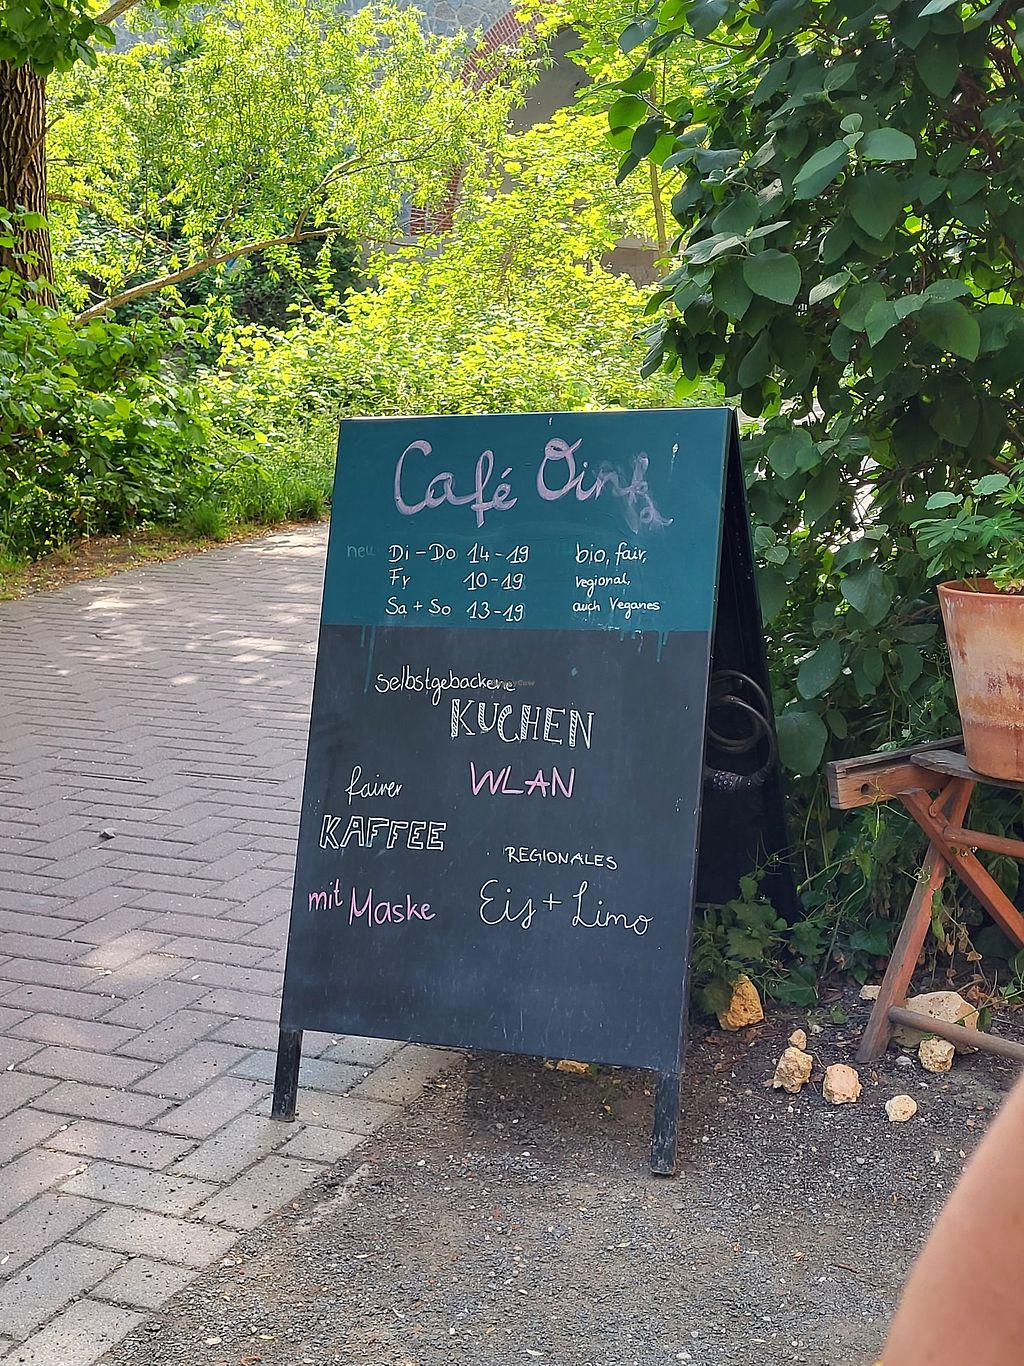 Café Oink
neu Di - Do 14 - 19 bio, fair,
Fr 10 - 19 regional,
Sa + So 13 - 19 auch Veganes
Selbstgebackene
KUCHEN
fairer WLAN
KAFFEE
REGIONALES
mit Maske Eis + Limo